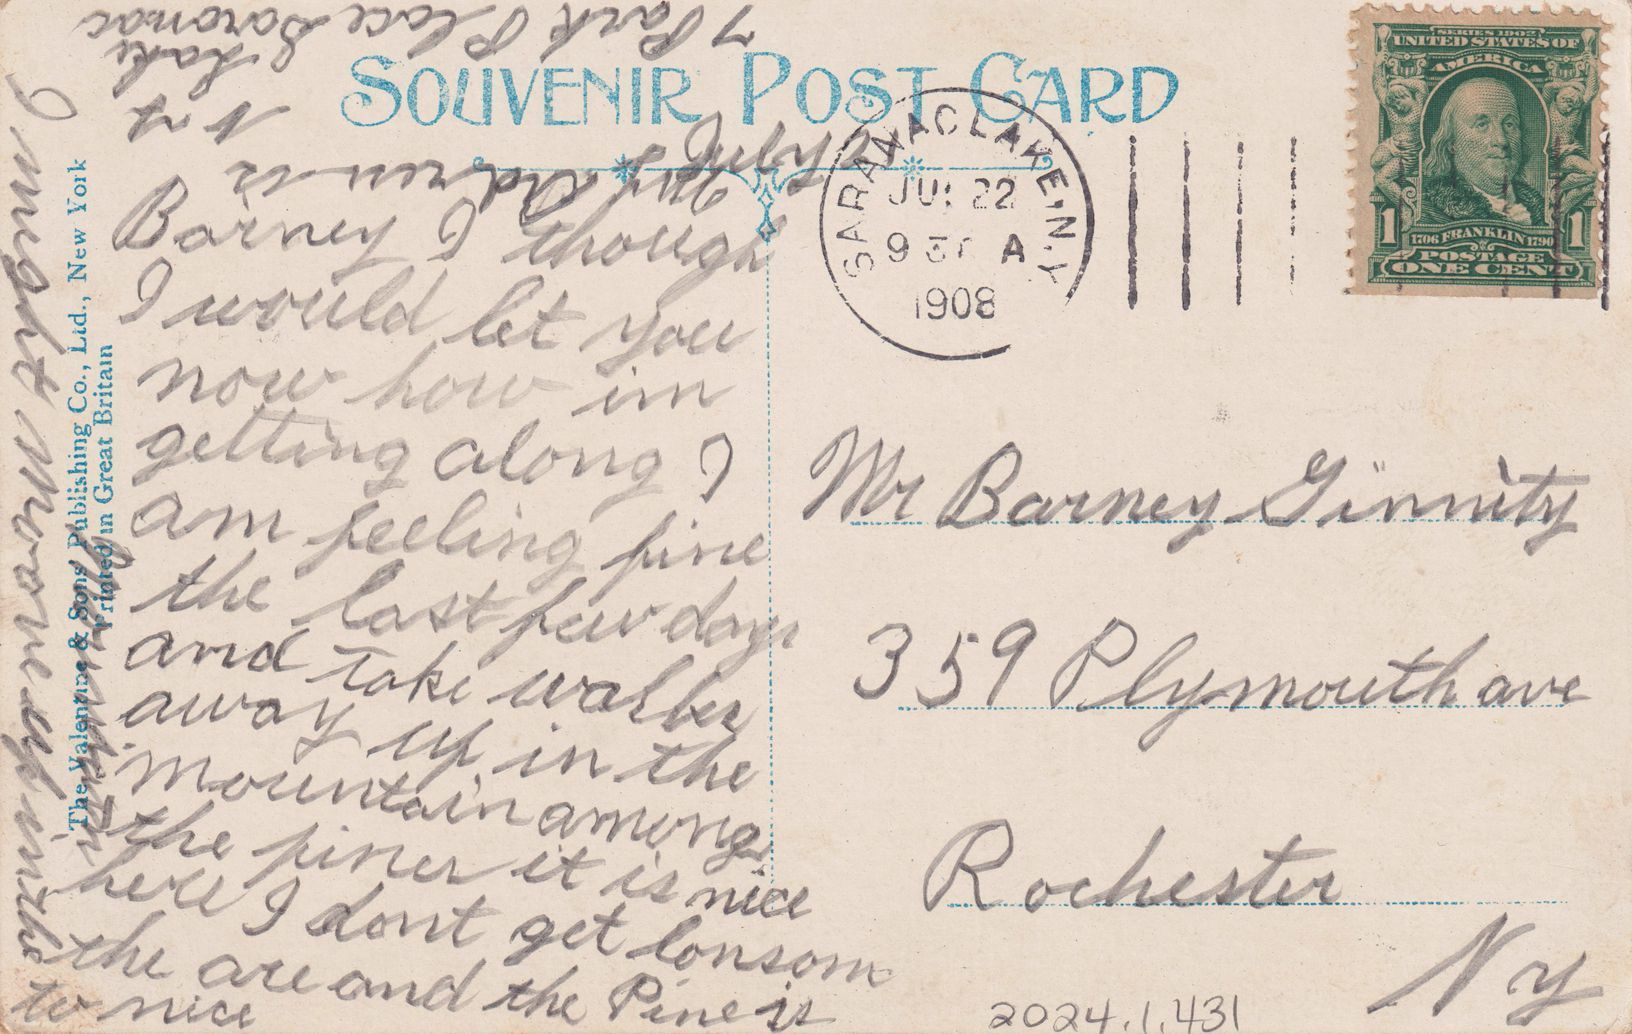 SOUVENIR POST CARD
SERIES 1902
UNITED STATES OF
AMERICA
1 1
1706 FRANKLIN 1790
POSTAGE
ONE CENT
SARANAC LAKE, N.Y.
JUL 22
9 30 A
1908
Barney I though
I would let you
now how im
getting along I
am feeling fine
the last few days
and take walkes
away up in the
mountain among
the pines it is nice
here I dont get lonsom
the are and the Pine is
to nice
my Adress is
7 Park Place Saranac
Lake
N Y
Mr Barney Ginnity
359 Plymouth ave
Rochester
N Y
The Valentine & Sons Publishing Co., Ltd., New York
Printed in Great Britain
2024.1.431